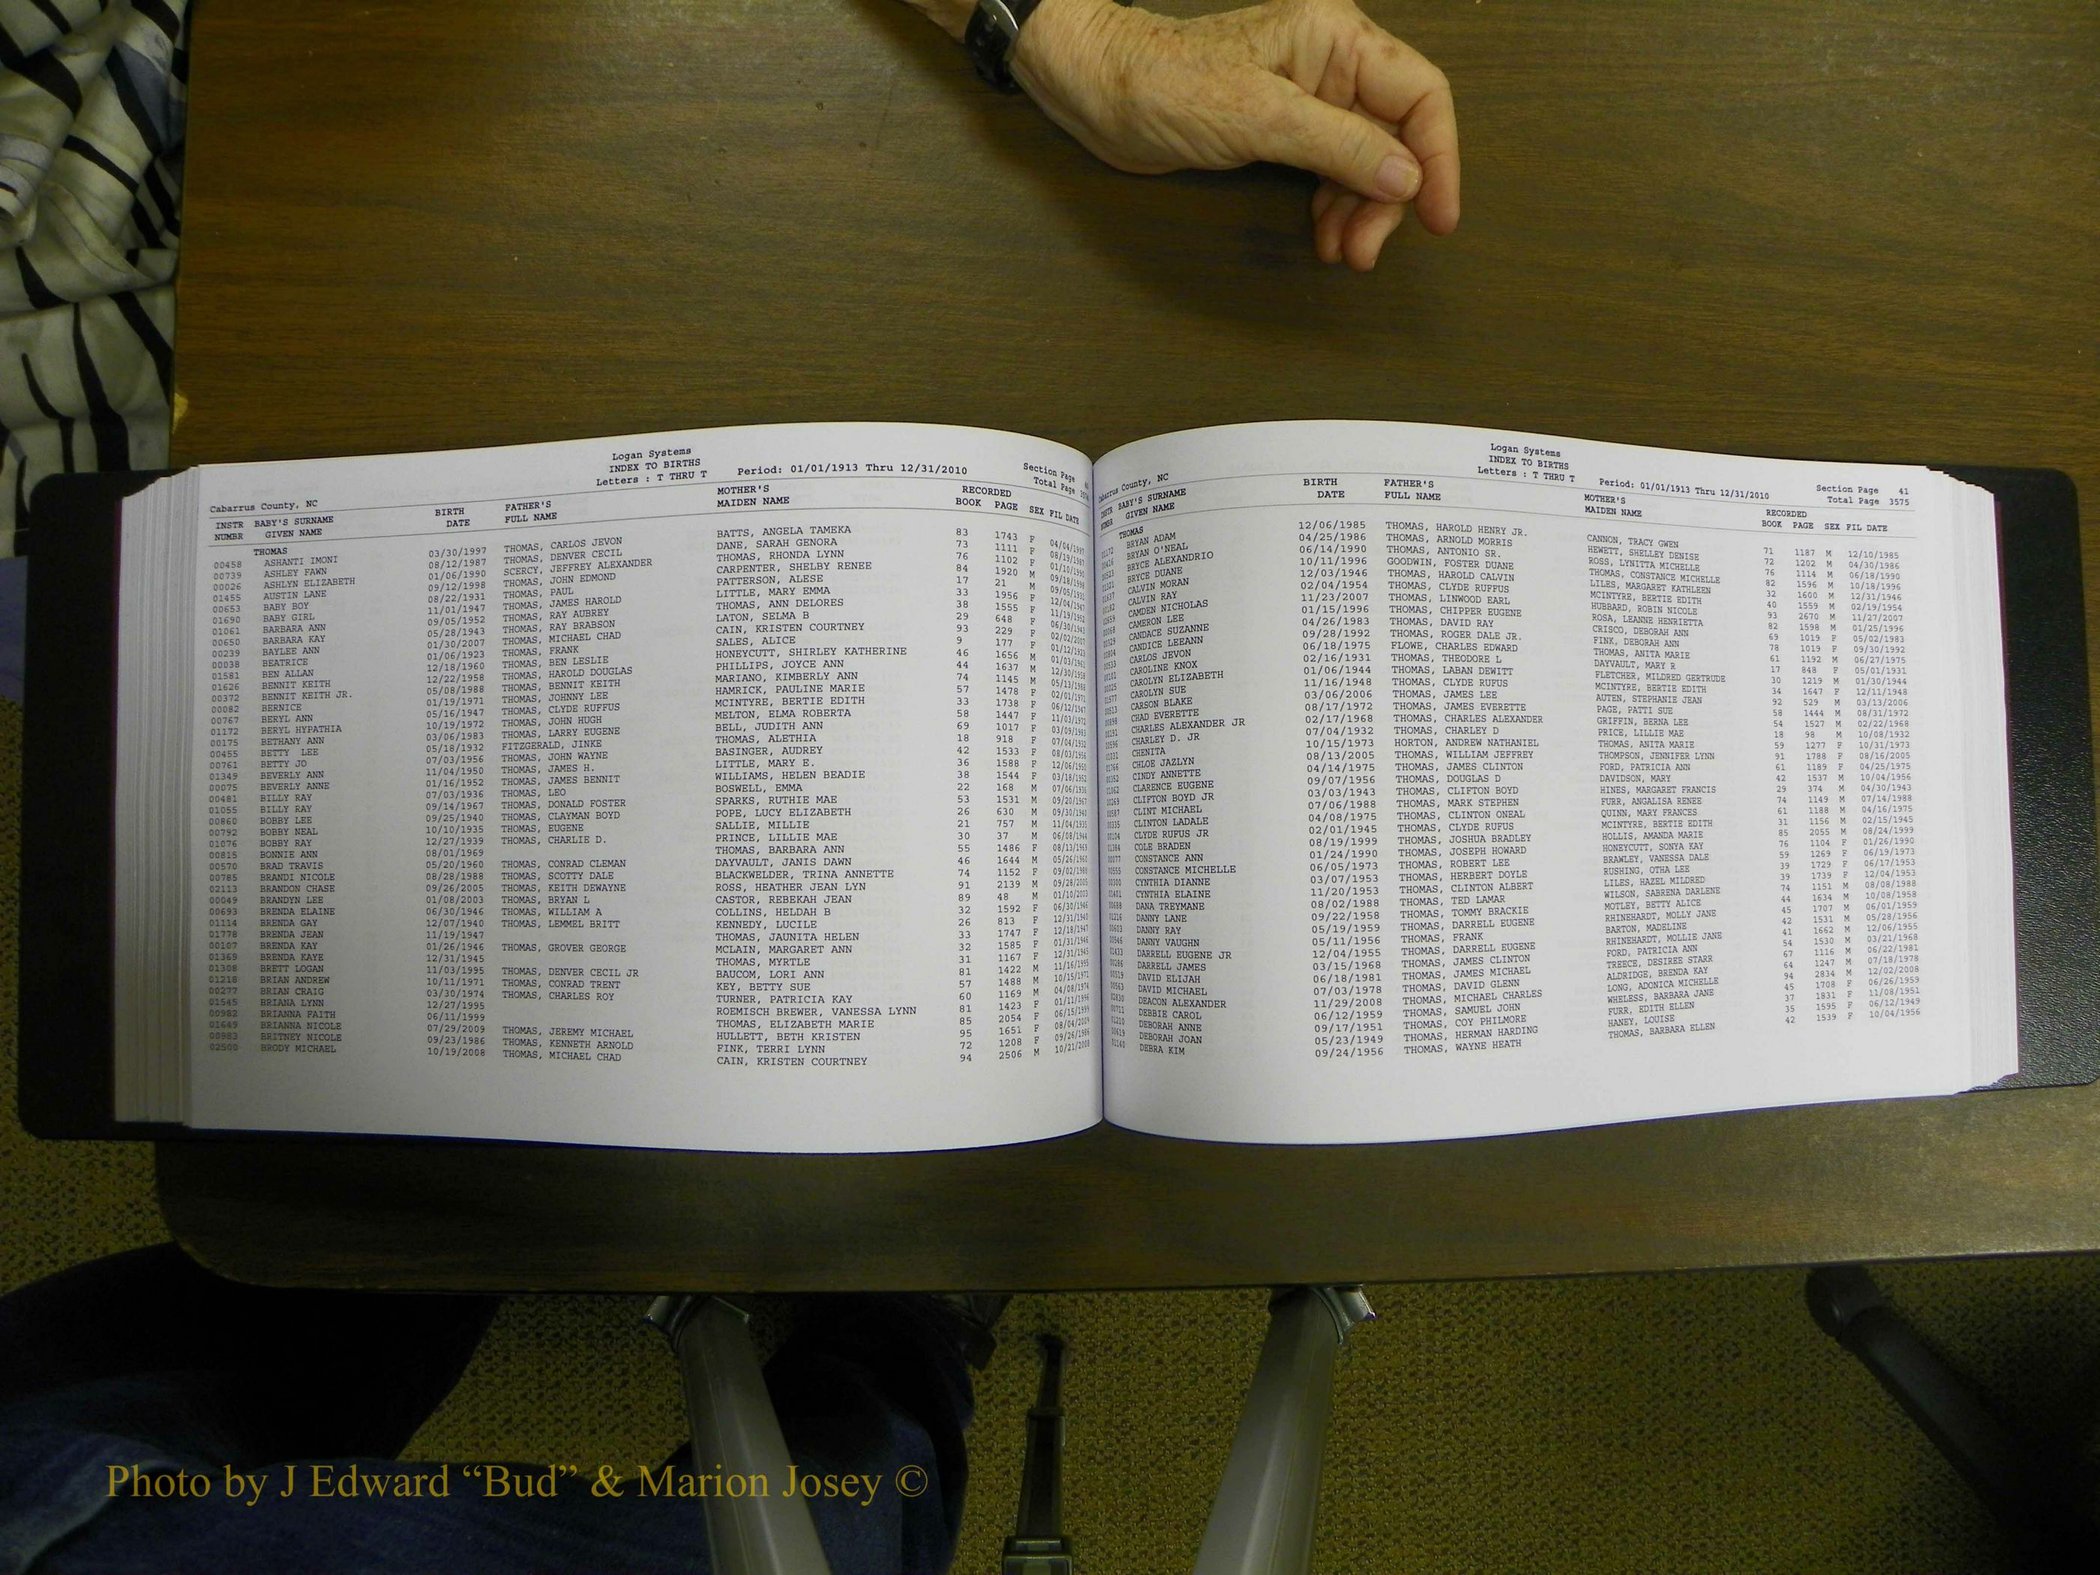 Logan Systems
INDEX TO BIRTHS
Letters : T THRU T Period: 01/01/1913 Thru 12/31/2010
Cabarrus County, NC Section Page 40
Total Page
INSTR BABY'S SURNAME BIRTH FATHER'S MOTHER'S RECORDED
NUMBR GIVEN NAME DATE FULL NAME MAIDEN NAME BOOK PAGE SEX FIL DATE
THOMAS
00458 ASHANTI IMONI 03/30/1997 THOMAS, CARLOS JEVON BATTS, ANGELA TAMEKA 83 1743 F 04/04/1997
00739 ASHLEY FAWN 08/12/1987 THOMAS, DENVER CECIL DANE, SARAH GENORA 73 1111 F 08/19/1987
00026 ASHLYN ELIZABETH 01/06/1990 SCERCY, JEFFREY ALEXANDER THOMAS, RHONDA LYNN 76 1102 F 01/10/1990
01455 AUSTIN LANE 09/12/1998 THOMAS, JOHN EDMOND CARPENTER, SHELBY RENEE 84 1920 M 09/18/1998
00653 BABY BOY 08/22/1931 THOMAS, PAUL PATTERSON, ALESE 17 21 M 09/05/1931
01690 BABY GIRL 11/01/1947 THOMAS, JAMES HAROLD LITTLE, MARY EMMA 33 1956 F 12/04/1947
01061 BARBARA ANN 09/05/1952 THOMAS, RAY AUBREY THOMAS, ANN DELORES 38 1555 F 11/19/1952
00650 BARBARA KAY 05/28/1943 THOMAS, RAY BRABSON LATON, SELMA B 29 648 F 06/30/1943
00239 BAYLEE ANN 01/30/2007 THOMAS, MICHAEL CHAD CAIN, KRISTEN COURTNEY 93 229 F 02/02/2007
00038 BEATRICE 01/06/1923 THOMAS, FRANK SALES, ALICE 9 177 F 01/12/1923
01581 BEN ALLAN 12/18/1960 THOMAS, BEN LESLIE HONEYCUTT, SHIRLEY KATHERINE 46 1656 M 01/03/1961
01626 BENNIT KEITH 12/22/1958 THOMAS, HAROLD DOUGLAS PHILLIPS, JOYCE ANN 44 1637 M 12/30/1958
00372 BENNIT KEITH JR. 05/08/1988 THOMAS, BENNIT KEITH MARIANO, KIMBERLY ANN 74 1145 M 05/13/1988
00082 BERNICE 01/19/1971 THOMAS, JOHNNY LEE HAMRICK, PAULINE MARIE 57 1478 F 02/01/1971
00767 BERYL ANN 05/16/1947 THOMAS, CLYDE RUFFUS MCINTYRE, BERTIE EDITH 33 1738 F 06/12/1947
01172 BERYL HYPATHIA 10/19/1972 THOMAS, JOHN HUGH MELTON, ELMA ROBERTA 58 1447 F 11/03/1972
00175 BETHANY ANN 03/06/1983 THOMAS, LARRY EUGENE BELL, JUDITH ANN 69 1017 F 03/09/1983
00455 BETTY LEE 05/18/1932 FITZGERALD, JINKE THOMAS, ALETHIA 18 918 F 07/04/1932
00761 BETTY JO 07/03/1956 THOMAS, JOHN WAYNE BASINGER, AUDREY 42 1533 F 08/03/1956
01349 BEVERLY ANN 11/04/1950 THOMAS, JAMES H. LITTLE, MARY E. 36 1588 F 12/06/1950
00075 BEVERLY ANNE 01/16/1952 THOMAS, JAMES BENNIT WILLIAMS, HELEN BEADIE 38 1544 F 03/18/1952
00481 BILLY RAY 07/03/1936 THOMAS, LEO BOSWELL, EMMA 22 168 M 07/06/1936
01055 BILLY RAY 09/14/1967 THOMAS, DONALD FOSTER SPARKS, RUTHIE MAE 53 1531 M 09/20/1967
00860 BOBBY LEE 09/25/1940 THOMAS, CLAYMAN BOYD POPE, LUCY ELIZABETH 26 630 M 09/30/1940
00792 BOBBY NEAL 10/10/1935 THOMAS, EUGENE SALLIE, MILLIE 21 757 M 11/04/1935
01076 BOBBY RAY 12/27/1939 THOMAS, CHARLIE D. PRINCE, LILLIE MAE 30 37 M 06/08/1944
00815 BONNIE ANN 08/01/1969 THOMAS, BARBARA ANN 55 1486 F 08/13/1969
00570 BRAD TRAVIS 05/20/1960 THOMAS, CONRAD CLEMAN DAYVAULT, JANIS DAWN 46 1644 M 05/26/1960
00785 BRANDI NICOLE 08/28/1988 THOMAS, SCOTTY DALE BLACKWELDER, TRINA ANNETTE 74 1152 F 09/02/1988
02113 BRANDON CHASE 09/26/2005 THOMAS, KEITH DEWAYNE ROSS, HEATHER JEAN LYN 91 2139 M 09/28/2005
00049 BRANDYN LEE 01/08/2003 THOMAS, BRYAN L CASTOR, REBEKAH JEAN 89 48 M 01/10/2003
00693 BRENDA ELAINE 06/30/1946 THOMAS, WILLIAM A COLLINS, HELDAH B 32 1592 F 06/30/1946
01114 BRENDA GAY 12/07/1940 THOMAS, LEMMEL BRITT KENNEDY, LUCILE 26 813 F 12/31/1940
01778 BRENDA JEAN 11/19/1947 THOMAS, JAUNITA HELEN 33 1747 F 12/18/1947
00107 BRENDA KAY 01/26/1946 THOMAS, GROVER GEORGE MCLAIN, MARGARET ANN 32 1585 F 01/31/1946
01369 BRENDA KAYE 12/31/1945 THOMAS, MYRTLE 31 1167 F 12/31/1945
01308 BRETT LOGAN 11/03/1995 THOMAS, DENVER CECIL JR BAUCOM, LORI ANN 81 1422 M 11/16/1995
01218 BRIAN ANDREW 10/11/1971 THOMAS, CONRAD TRENT KEY, BETTY SUE 57 1488 M 10/15/1971
00277 BRIAN CRAIG 03/30/1974 THOMAS, CHARLES ROY TURNER, PATRICIA KAY 60 1169 M 04/08/1974
01545 BRIANA LYNN 12/27/1995 ROEMISCH BREWER, VANESSA LYNN 81 1423 F 01/11/1996
00982 BRIANNA FAITH 06/11/1999 THOMAS, ELIZABETH MARIE 85 2054 F 06/15/1999
01649 BRIANNA NICOLE 07/29/2009 THOMAS, JEREMY MICHAEL HULLETT, BETH KRISTEN 95 1651 F 08/04/2009
00983 BRITNEY NICOLE 09/23/1986 THOMAS, KENNETH ARNOLD FINK, TERRI LYNN 72 1208 F 09/26/1986
02500 BRODY MICHAEL 10/19/2008 THOMAS, MICHAEL CHAD CAIN, KRISTEN COURTNEY 94 2506 M 10/21/2008
Logan Systems
INDEX TO BIRTHS
Letters : T THRU T Period: 01/01/1913 Thru 12/31/2010
Cabarrus County, NC Section Page 41
Total Page 3575
INSTR BABY'S SURNAME BIRTH FATHER'S MOTHER'S RECORDED
NUMBR GIVEN NAME DATE FULL NAME MAIDEN NAME BOOK PAGE SEX FIL DATE
THOMAS
BRYAN ADAM 12/06/1985 THOMAS, HAROLD HENRY JR. CANNON, TRACY GWEN 71 1187 M 12/10/1985
BRYAN O'NEAL 04/25/1986 THOMAS, ARNOLD MORRIS HEWETT, SHELLEY DENISE 72 1202 M 04/30/1986
BRYCE ALEXANDRIO 06/14/1990 THOMAS, ANTONIO SR. ROSS, LYNITTA MICHELLE 76 1114 M 06/18/1990
BRYCE DUANE 10/11/1996 GOODWIN, FOSTER DUANE THOMAS, CONSTANCE MICHELLE 82 1596 M 10/18/1996
CALVIN MORAN 12/03/1946 THOMAS, HAROLD CALVIN LILES, MARGARET KATHLEEN 32 1600 M 12/31/1946
CALVIN RAY 02/04/1954 THOMAS, CLYDE RUFFUS MCINTYRE, BERTIE EDITH 40 1559 M 02/19/1954
CAMDEN NICHOLAS 11/23/2007 THOMAS, LINWOOD EARL HUBBARD, ROBIN NICOLE 93 2670 M 11/27/2007
CAMERON LEE 01/15/1996 THOMAS, CHIPPER EUGENE ROSA, LEANNE HENRIETTA 82 1598 M 01/25/1996
CANDACE SUZANNE 04/26/1983 THOMAS, DAVID RAY CRISCO, DEBORAH ANN 69 1019 F 05/02/1983
CANDICE LEEANN 09/28/1992 THOMAS, ROGER DALE JR. FINK, DEBORAH ANN 78 1019 F 09/30/1992
CARLOS JEVON 06/18/1975 FLOWE, CHARLES EDWARD THOMAS, ANITA MARIE 61 1192 M 06/27/1975
CAROLINE KNOX 02/16/1931 THOMAS, THEODORE L DAYVAULT, MARY R 17 848 F 05/01/1931
CAROLYN ELIZABETH 01/06/1944 THOMAS, LABAN DEWITT FLETCHER, MILDRED GERTRUDE 30 1219 M 01/30/1944
CAROLYN SUE 11/16/1948 THOMAS, CLYDE RUFUS MCINTYRE, BERTIE EDITH 34 1647 F 12/11/1948
CARSON BLAKE 03/06/2006 THOMAS, JAMES LEE AUTEN, STEPHANIE JEAN 92 529 M 03/13/2006
CHAD EVERETTE 08/17/1972 THOMAS, JAMES EVERETTE PAGE, PATTI SUE 58 1444 M 08/31/1972
CHARLES ALEXANDER JR 02/17/1968 THOMAS, CHARLES ALEXANDER GRIFFIN, BERNA LEE 54 1527 M 02/22/1968
CHARLEY D. JR 07/04/1932 THOMAS, CHARLEY D PRICE, LILLIE MAE 18 98 M 10/08/1932
CHENITA 10/15/1973 HORTON, ANDREW NATHANIEL THOMAS, ANITA MARIE 59 1277 F 10/31/1973
CHLOE JAZLYN 08/13/2005 THOMAS, WILLIAM JEFFREY THOMPSON, JENNIFER LYNN 91 1788 F 08/16/2005
CINDY ANNETTE 04/14/1975 THOMAS, JAMES CLINTON FORD, PATRICIA ANN 61 1189 F 04/25/1975
CLARENCE EUGENE 09/07/1956 THOMAS, DOUGLAS D DAVIDSON, MARY 42 1537 M 10/04/1956
CLIFTON BOYD JR 03/03/1943 THOMAS, CLIFTON BOYD HINES, MARGARET FRANCIS 29 374 M 04/30/1943
CLINT MICHAEL 07/06/1988 THOMAS, MARK STEPHEN FURR, ANGALISA RENEE 74 1149 M 07/14/1988
CLINTON LADALE 04/08/1975 THOMAS, CLINTON ONEAL QUINN, MARY FRANCES 61 1188 M 04/16/1975
CLYDE RUFUS JR 02/01/1945 THOMAS, CLYDE RUFUS MCINTYRE, BERTIE EDITH 31 1156 M 02/15/1945
COLE BRADEN 08/19/1999 THOMAS, JOSHUA BRADLEY HOLLIS, AMANDA MARIE 85 2055 M 08/24/1999
CONSTANCE ANN 01/24/1990 THOMAS, JOSEPH HOWARD HONEYCUTT, SONYA KAY 76 1104 F 01/26/1990
CONSTANCE MICHELLE 06/05/1973 THOMAS, ROBERT LEE BRAWLEY, VANESSA DALE 59 1269 F 06/19/1973
CYNTHIA DIANNE 03/07/1953 THOMAS, HERBERT DOYLE RUSHING, OTHA LEE 39 1729 F 06/17/1953
CYNTHIA ELAINE 11/20/1953 THOMAS, CLINTON ALBERT LILES, HAZEL MILDRED 39 1739 F 12/04/1953
DANA TREYMANE 08/02/1988 THOMAS, TED LAMAR WILSON, SABRENA DARLENE 74 1151 M 08/08/1988
DANNY LANE 09/22/1958 THOMAS, TOMMY BRACKIE MOTLEY, BETTY ALICE 44 1634 M 10/08/1958
DANNY RAY 05/19/1959 THOMAS, DARRELL EUGENE RHINEHARDT, MOLLY JANE 45 1707 M 06/01/1959
DANNY VAUGHN 05/11/1956 THOMAS, FRANK BARTON, MADELINE 42 1531 M 05/28/1956
DARRELL EUGENE JR 12/04/1955 THOMAS, DARRELL EUGENE RHINEHARDT, MOLLIE JANE 41 1662 M 12/06/1955
DARRELL JAMES 03/15/1968 THOMAS, JAMES CLINTON FORD, PATRICIA ANN 54 1530 M 03/21/1968
DAVID ELIJAH 06/18/1981 THOMAS, JAMES MICHAEL TREECE, DESIREE STARR 67 1116 M 06/22/1981
DAVID MICHAEL 07/03/1978 THOMAS, DAVID GLENN ALDRIDGE, BRENDA KAY 64 1247 M 07/18/1978
DEACON ALEXANDER 11/29/2008 THOMAS, MICHAEL CHARLES LONG, ADONICA MICHELLE 94 2834 M 12/02/2008
DEBBIE CAROL 06/12/1959 THOMAS, SAMUEL JOHN WHELESS, BARBARA JANE 45 1708 F 06/26/1959
DEBORAH ANNE 09/17/1951 THOMAS, COY PHILMORE FURR, EDITH ELLEN 37 1831 F 11/08/1951
DEBORAH JOAN 05/23/1949 THOMAS, HERMAN HARDING HANEY, LOUISE 35 1595 F 06/12/1949
DEBRA KIM 09/24/1956 THOMAS, WAYNE HEATH THOMAS, BARBARA ELLEN 42 1539 F 10/04/1956
Photo by J Edward “Bud” & Marion Josey ©